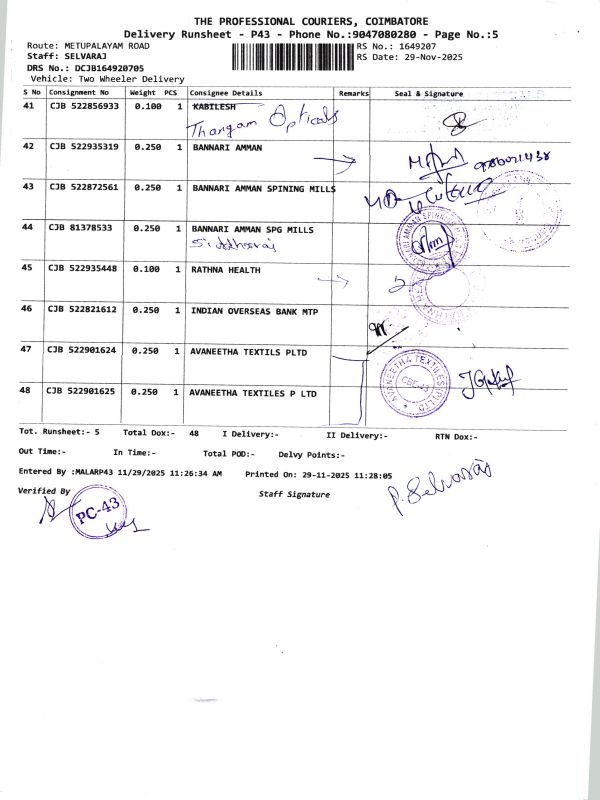 THE PROFESSIONAL COURIERS, COIMBATORE
Delivery Runsheet - P43 - Phone No.:9047080280 - Page No.:5
Route: METUPALAYAM ROAD
RS No.: 1649207
Staff: SELVARAJ
RS Date: 29-Nov-2025
DRS No.: DCJB164920705
Vehicle: Two Wheeler Delivery
S No Consignment No Weight PCS Consignee Details Remarks Seal & Signature
41 CJB 522856933 0.100 1 KABILESH
Thangam Opticals
42 CJB 522935319 0.250 1 BANNARI AMMAN
43 CJB 522872561 0.250 1 BANNARI AMMAN SPINING MILLS
44 CJB 81378533 0.250 1 BANNARI AMMAN SPG MILLS
45 CJB 522935448 0.100 1 RATHNA HEALTH
46 CJB 522821612 0.250 1 INDIAN OVERSEAS BANK MTP
47 CJB 522901624 0.250 1 AVANEETHA TEXTILS PLTD
AVANEETHA TEXTILES (P) LTD.
CBE-43
48 CJB 522901625 0.250 1 AVANEETHA TEXTILES P LTD
Tot. Runsheet:- 5 Total Dox:- 48 I Delivery:- II Delivery:- RTN Dox:-
Out Time:- In Time:- Total POD:- Delvy Points:-
Entered By :MALARP43 11/29/2025 11:26:34 AM Printed On: 29-11-2025 11:28:05
Verified By Staff Signature
P. Selvaraj
PC-43